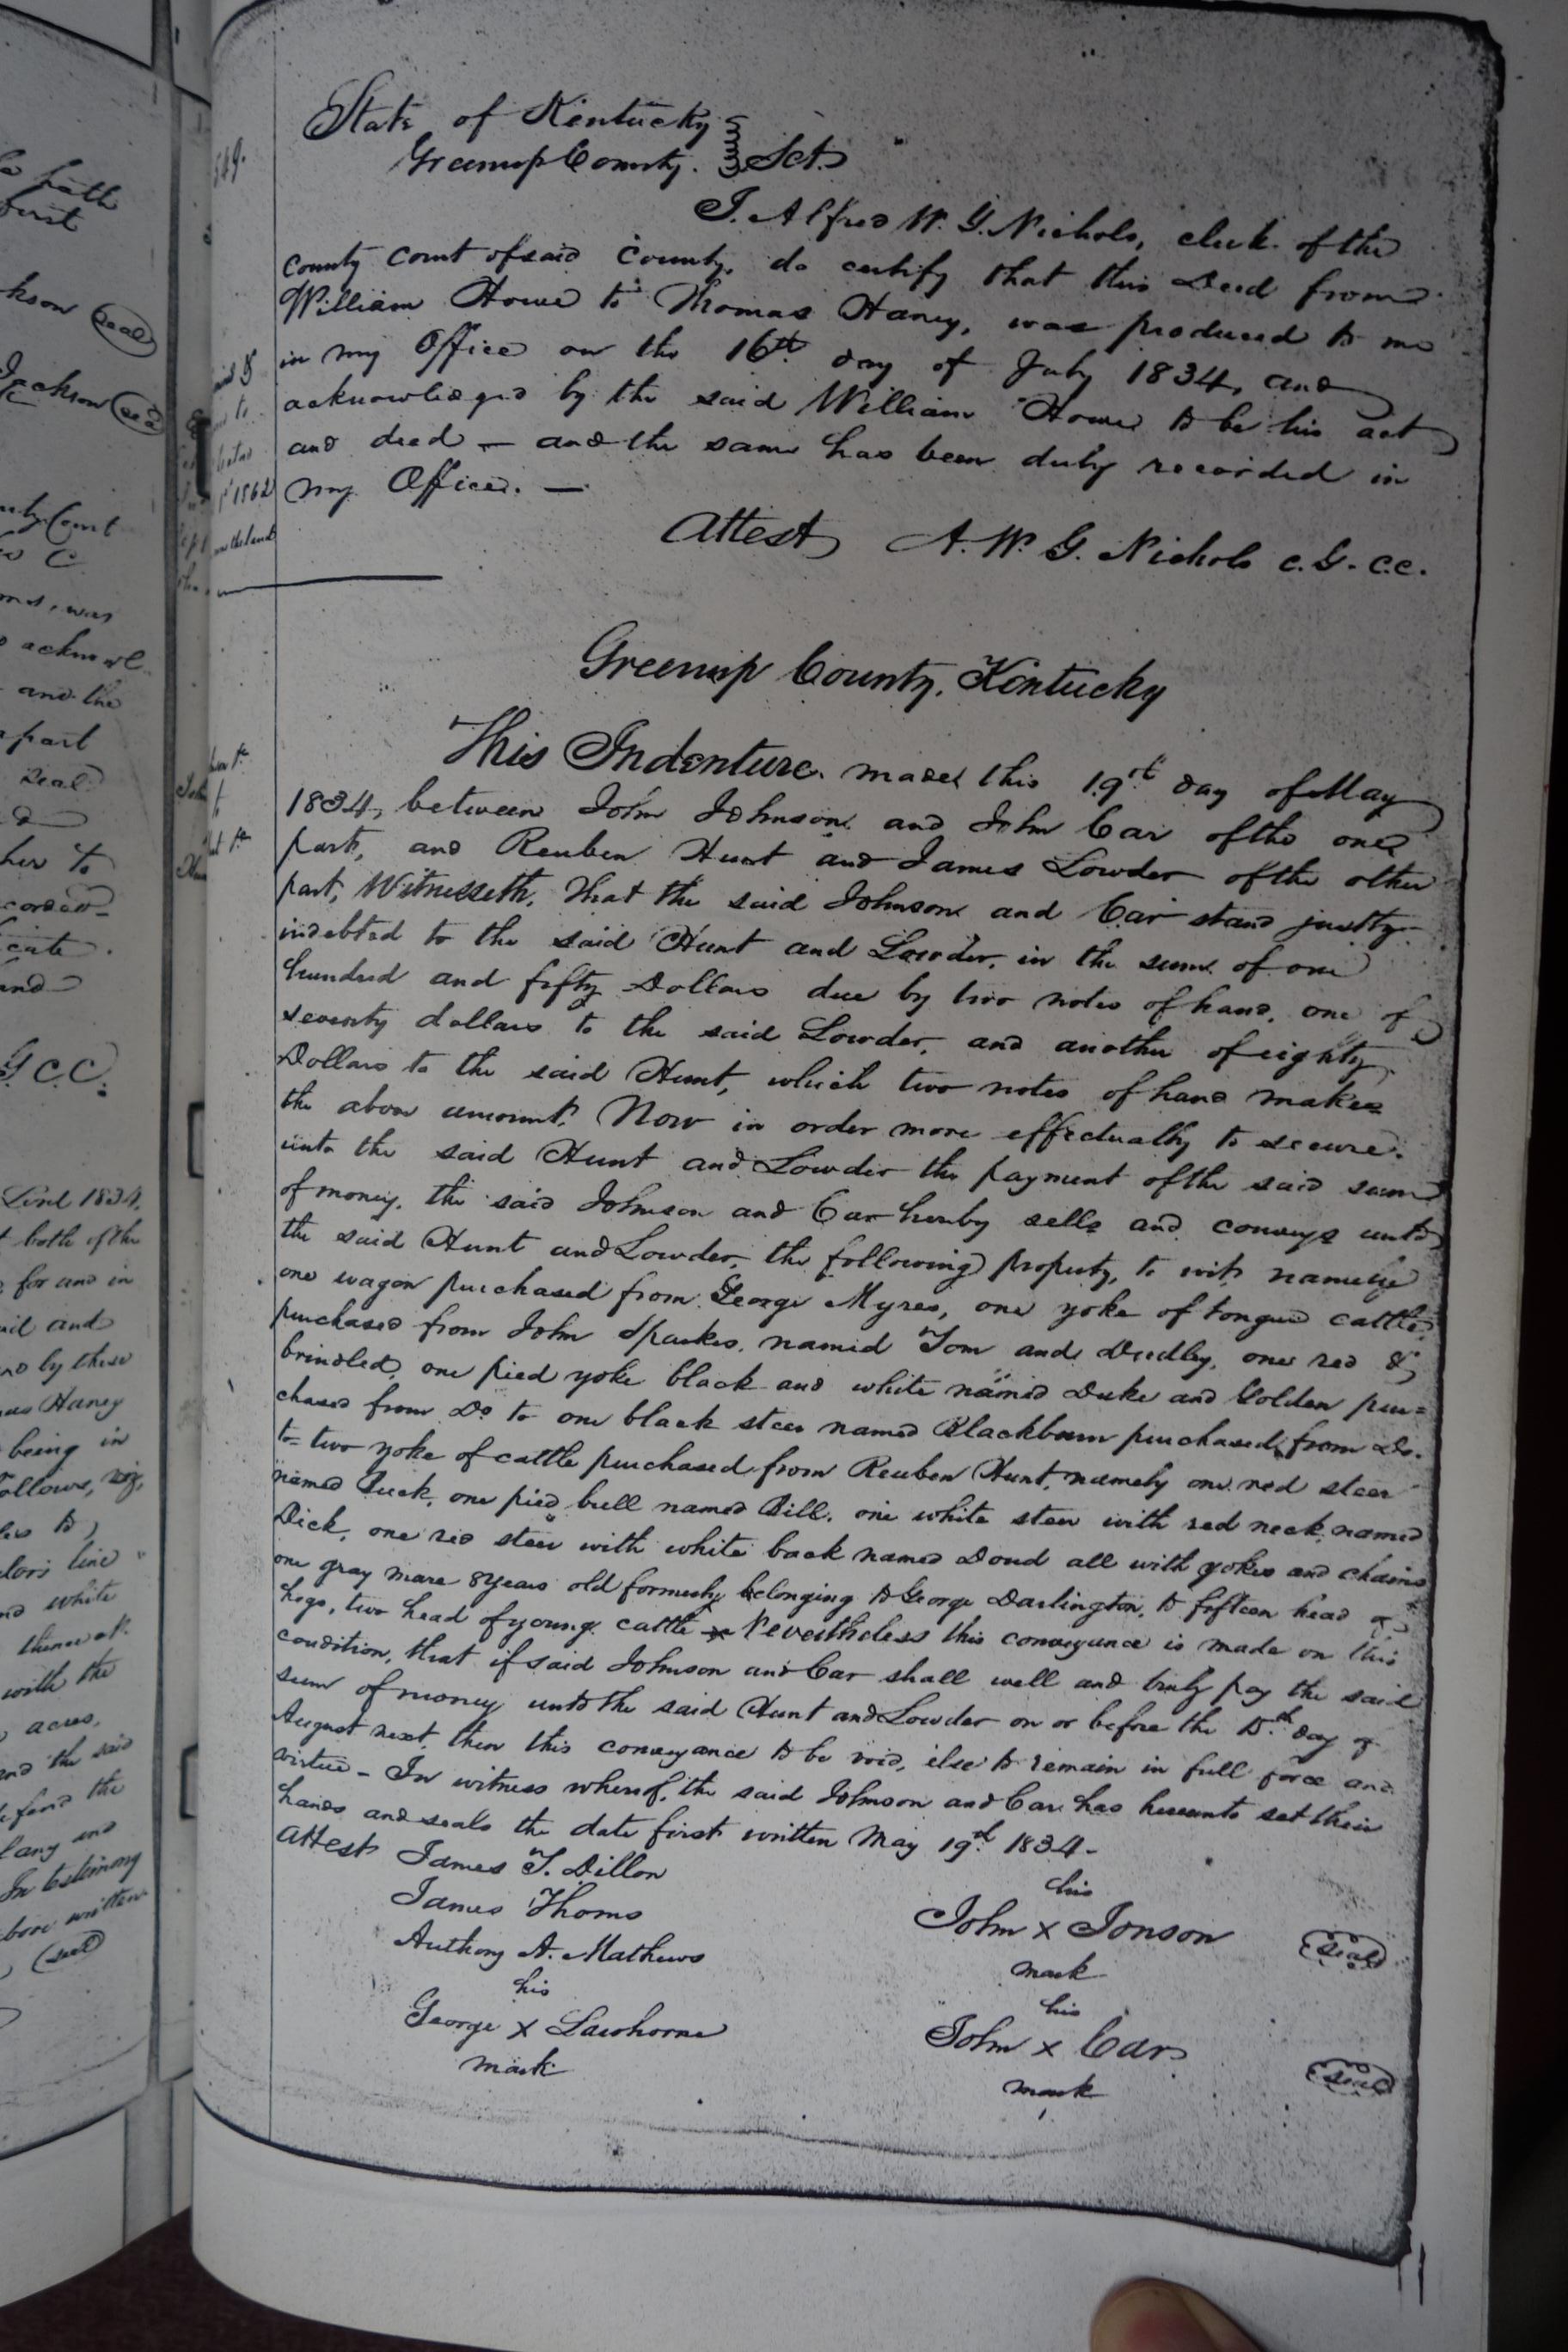 State of Kentucky
Greenup County. Sct.
I. Alfred W. G. Nichols, clerk of the
county court of said County, do certify that this Deed from
William Howe to Thomas Haney, was produced to me
in my Office on the 16th day of July 1834, and
acknowledged by the said William Howe to be his act
and deed — and the same has been duly recorded in
my Office. —
Attest A. W. G. Nichols C. G. C. C.
Greenup County, Kentucky
This Indenture made this 19th day of May
1834, between John Johnson and John Car of the one
part, and Reuben Hunt and James Lowder of the other
part, Witnesseth, That the said Johnson and Car stand justly
indebted to the said Hunt and Lowder, in the sum of one
hundred and fifty Dollars due by two notes of hand, one of
seventy dollars to the said Lowder, and another of eighty
Dollars to the said Hunt, which two notes of hand makes
the above amount. Now in order more effectually to secure
unto the said Hunt and Lowder the payment of the said sum
of money, the said Johnson and Car hereby sells and conveys unto
the said Hunt and Lowder, the following property, to wit, namely
one wagon purchased from George Myres, one yoke of tongue cattle
purchased from John Sparkes, named Tom and Dudley, one red &
brindled, one pied yoke black and white named Duke and Golden pur=
chased from Do to one black steer named Blackburn purchased from Do.
to two yoke of cattle purchased from Reuben Hunt, namely one red steer
named Buck, one pied bull named Bill, one white steer with red neck named
Dick, one red steer with white back named Doud all with yokes and chains
one gray mare 8 years old formerly belonging to George Darlington, to fifteen head of
hogs, two head of young cattle Nevertheless this conveyance is made on this
condition, that if said Johnson and Car shall well and truly pay the said
sum of money unto the said Hunt and Lowder on or before the 15th day of
August next, then this conveyance to be void, else to remain in full force and
virtue - In witness whereof, the said Johnson and Car has hereunto set their
hands and seals the date first written May 19th 1834-
Attest James T. Dillon
James Thoms
Anthony A. Mathews
his
George x Lawhorne
mark
his
John x Jonson (seal)
mark
his
John x Car (seal)
mark